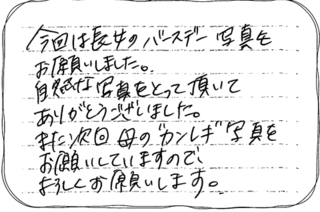 今回は長女のバースデー写真を
お願いしました。
自然な写真をとって頂いて
ありがとうございました。
また次回 母の"カンレキ"写真を
お願いしていますので、
よろしくお願いします。